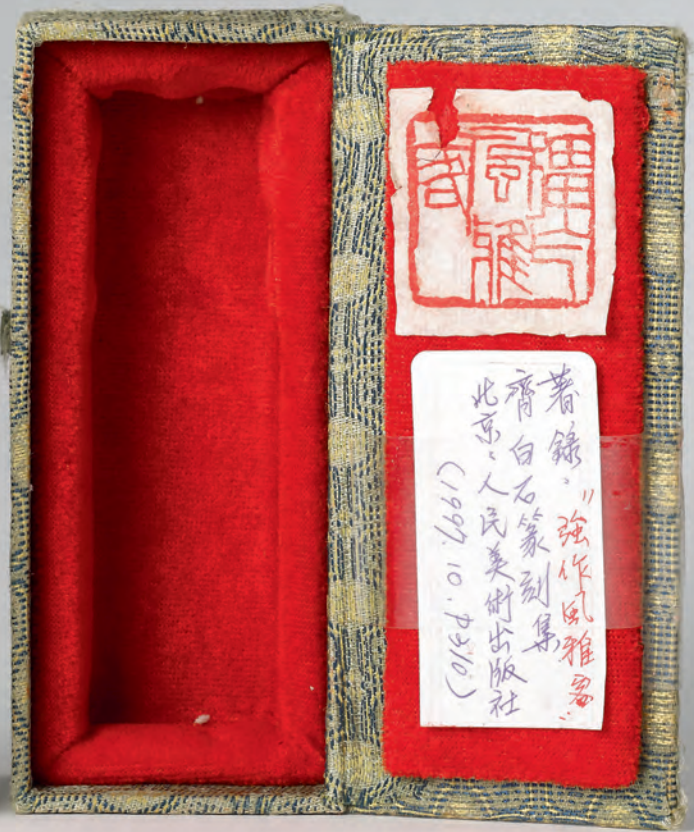 彊作
風雅
客
著錄："強作風雅客"
齊白石篆刻集
北京：人民美術出版社
(1997.10.P310)